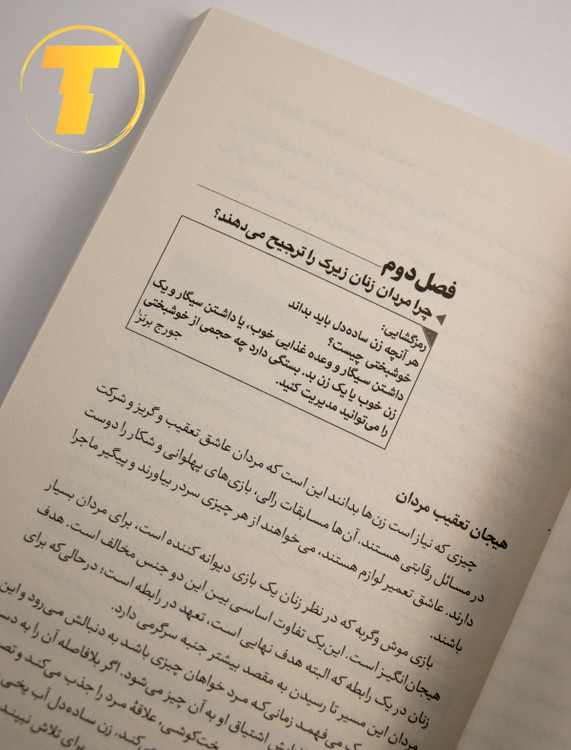 T
فصل دوم
چرا مردان زنان زیرک را ترجیح می‌دهند؟
رمزگشایی:
هر آنچه زن ساده‌دل باید بداند
خوشبختی چیست؟
داشتن سیگار و وعده غذایی خوب، یا داشتن سیگار و یک
زن خوب یا یک زن بد. بستگی دارد چه حجمی از خوشبختی
را می‌توانید مدیریت کنید.
جورج برنز
هیجان تعقیب مردان
چیزی که نیاز است زن‌ها بدانند این است که مردان عاشق تعقیب و گریز و شرکت
در مسائل رقابتی هستند. آن‌ها مسابقات رالی، بازی‌های پهلوانی و شکار را دوست
دارند. عاشق تعمیر لوازم هستند، می‌خواهند از هر چیزی سردر بیاورند و پیگیر ماجرا
باشند.
بازی موش وگربه که در نظر زنان یک بازی دیوانه کننده است، برای مردان بسیار
هیجان‌انگیز است. این‌یک تفاوت اساسی بین این دو جنس مخالف است. هدف
زنان در یک رابطه که البته هدف نهایی است، تعهد در رابطه است؛ درحالی‌که برای
مردان این مسیر تا رسیدن به مقصد بیشتر جنبه سرگرمی دارد.
می‌فهمد زمانی‌که مرد خواهان چیزی باشد به دنبالش می‌رود و این
اشتیاق او به آن چیز می‌شود. اگر بلافاصله آن را به
سخت‌کوشی، علاقهٔ مرد را جذب می‌کند و
می‌کند. زن ساده‌دل آب
برای تلاش نبیند